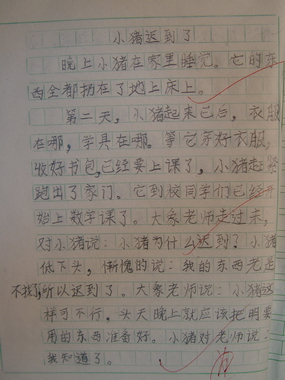 小猪迟到了
晚上小猪在家里睡觉。它的东
西全都扔在了地上床上。
第二天，小猪起来已后，衣服
在哪，学具在哪。等它弄好衣服，
收好书包，已经要上课了，小猪起
跑出了家门。它到校同学们已经开
始上数学课了。大家老师走过来，
对小猪说：小猪为什么迟到了？小猪
低下头，惭愧的说：我的东西老是
不找了，所以迟到了。大家老师说：小猪这
样可不行，头天晚上就应该把明天
用的东西准备好。小猪对老师说：
我知道了。